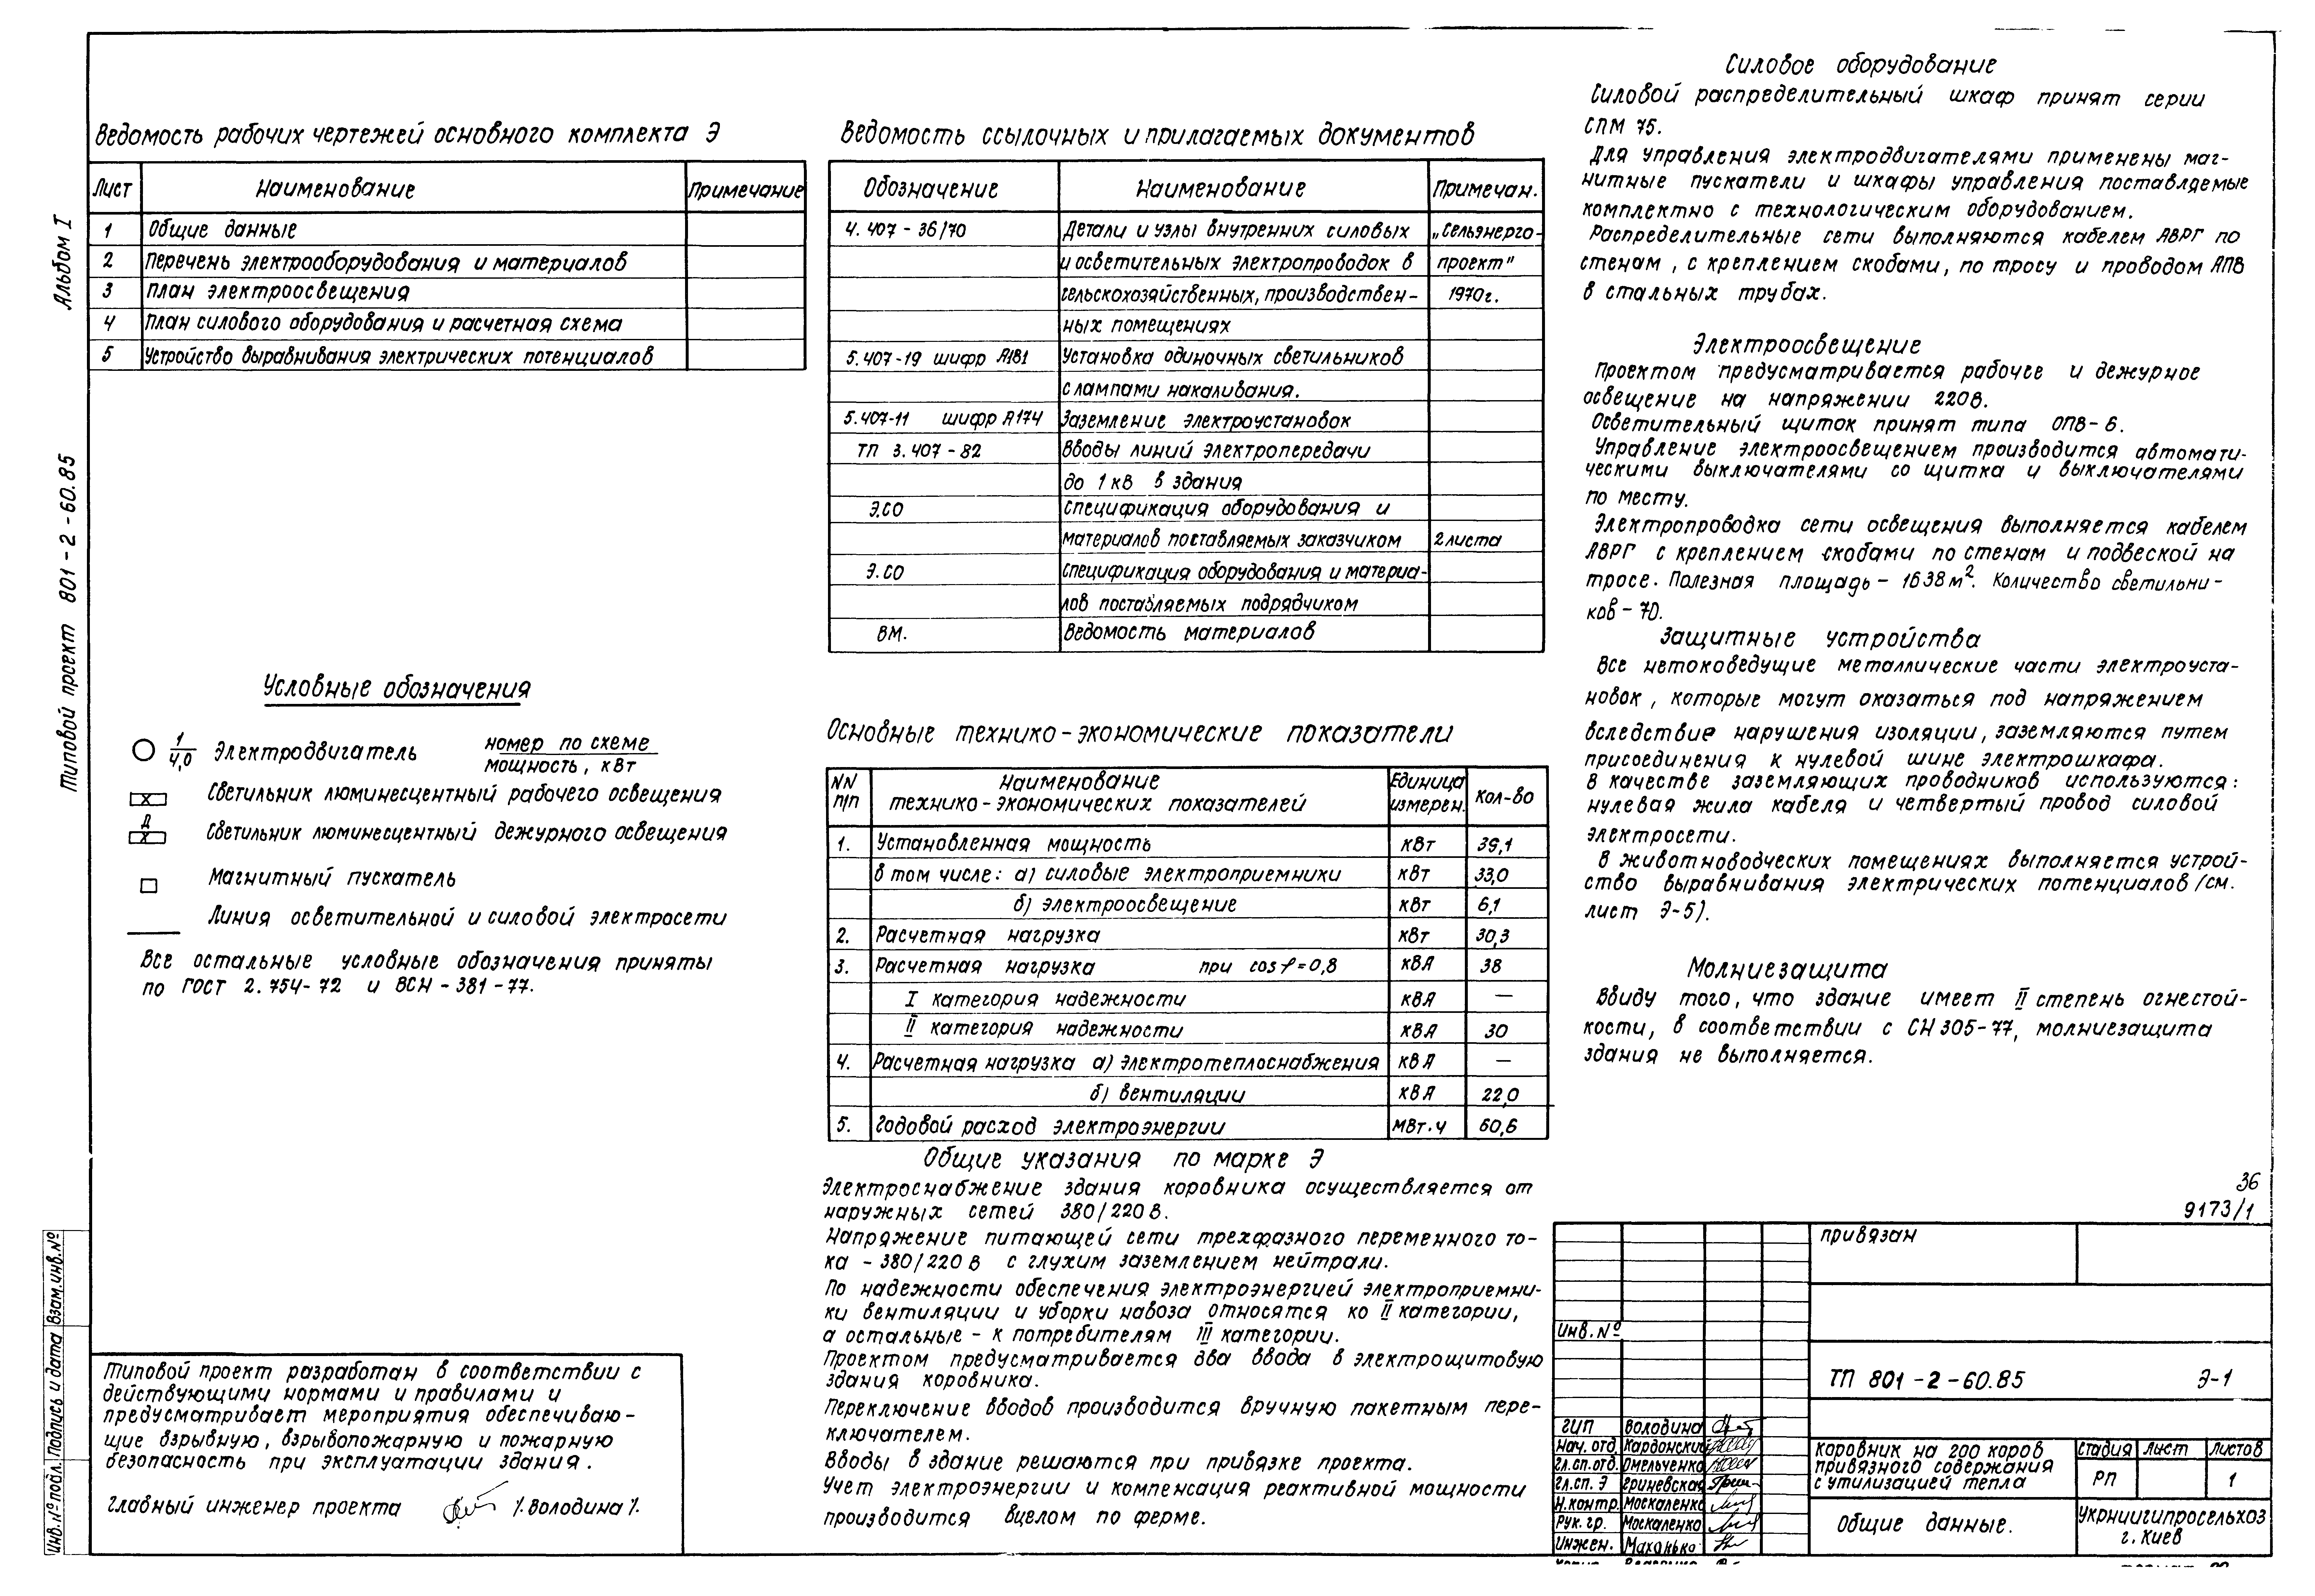 Альбом I
Типовой проект 801-2-60.85
Инв.№ подл. Подпись и дата Взам.инв.№
Ведомость рабочих чертежей основного комплекта Э
Лист Наименование Примечание
1 Общие данные
2 Перечень электрооборудования и материалов
3 План электроосвещения
4 План силового оборудования и расчетная схема
5 Устройство выравнивания электрических потенциалов
Условные обозначения
1/4,0 Электродвигатель номер по схеме
мощность, кВт
Светильник люминесцентный рабочего освещения
Д
Светильник люминесцентный дежурного освещения
Магнитный пускатель
Линия осветительной и силовой электросети
Все остальные условные обозначения приняты
по ГОСТ 2.754-72 и ВСН-381-77.
Типовой проект разработан в соответствии с
действующими нормами и правилами и
предусматривает мероприятия обеспечиваю-
щие взрывную, взрывопожарную и пожарную
безопасность при эксплуатации здания.
Главный инженер проекта /.Володина/.
Ведомость ссылочных и прилагаемых документов
Обозначение Наименование Примечан.
4.407-36/70 Детали и узлы внутренних силовых „Сельэнерго-
и осветительных электропроводок в проект"
сельскохозяйственных, производствен- 1970г.
ных помещениях
5.407-19 шифр А181 Установка одиночных светильников
с лампами накаливания.
5.407-11 шифр А174 Заземление электроустановок
ТП 3.407-82 Вводы линий электропередачи
до 1 кВ в здания
Э.СО Спецификация оборудования и
материалов поставляемых заказчиком 2 листа
Э.СО Спецификация оборудования и материа-
лов поставляемых подрядчиком
ВМ. Ведомость материалов
Основные технико-экономические показатели
NN п/п Наименование технико-экономических показателей Единица измерен. Кол-во
1. Установленная мощность кВт 39,1
в том числе: а) силовые электроприемники кВт 33,0
б) электроосвещение кВт 6,1
2. Расчетная нагрузка кВт 30,3
3. Расчетная нагрузка при cos φ=0,8 кВА 38
I категория надежности кВА —
II категория надежности кВА 30
4. Расчетная нагрузка а) электротеплоснабжения кВА —
б) вентиляции кВА 22,0
5. Годовой расход электроэнергии МВт.ч 60,6
Общие указания по марке Э
Электроснабжение здания коровника осуществляется от
наружных сетей 380/220 в.
Напряжение питающей сети трехфазного переменного то-
ка - 380/220 в с глухим заземлением нейтрали.
По надежности обеспечения электроэнергией электроприемни-
ки вентиляции и уборки навоза относятся ко II категории,
а остальные - к потребителям III категории.
Проектом предусматривается два ввода в электрощитовую
здания коровника.
Переключение вводов производится вручную пакетным пере-
ключателем.
Вводы в здание решаются при привязке проекта.
Учет электроэнергии и компенсация реактивной мощности
производится вцелом по ферме.
Силовое оборудование
Силовой распределительный шкаф принят серии
СПМ 75.
Для управления электродвигателями применены маг-
нитные пускатели и шкафы управления поставляемые
комплектно с технологическим оборудованием.
Распределительные сети выполняются кабелем АВРГ по
стенам, с креплением скобами, по тросу и проводом АПВ
в стальных трубах.
Электроосвещение
Проектом предусматривается рабочее и дежурное
освещение на напряжении 220в.
Осветительный щиток принят типа ОПВ-6.
Управление электроосвещением производится автомати-
ческими выключателями со щитка и выключателями
по месту.
Электропроводка сети освещения выполняется кабелем
АВРГ с креплением скобами по стенам и подвеской на
тросе. Полезная площадь - 1638 м². Количество светильни-
ков - 70.
Защитные устройства
Все нетоковедущие металлические части электроуста-
новок, которые могут оказаться под напряжением
вследствие нарушения изоляции, заземляются путем
присоединения к нулевой шине электрошкафа.
В качестве заземляющих проводников используются:
нулевая жила кабеля и четвертый провод силовой
электросети.
В животноводческих помещениях выполняется устрой-
ство выравнивания электрических потенциалов /см.
лист Э-5).
Молниезащита
Ввиду того, что здание имеет II степень огнестой-
кости, в соответствии с СН 305-77, молниезащита
здания не выполняется.
36
9173/1
Привязан
Инв.№
ТП 801-2-60.85 Э-1
ГИП Володина
Нач. отд. Кардонский
Гл.сп.отд. Омельченко
Гл.сп. Э Гриневская
Н.контр. Москаленко
Рук. гр. Москаленко
Инжен. Маханько
Коровник на 200 коров
привязного содержания
с утилизацией тепла
Стадия Лист Листов
РП 1
Общие данные.
УкрНИИгипросельхоз
г. Киев